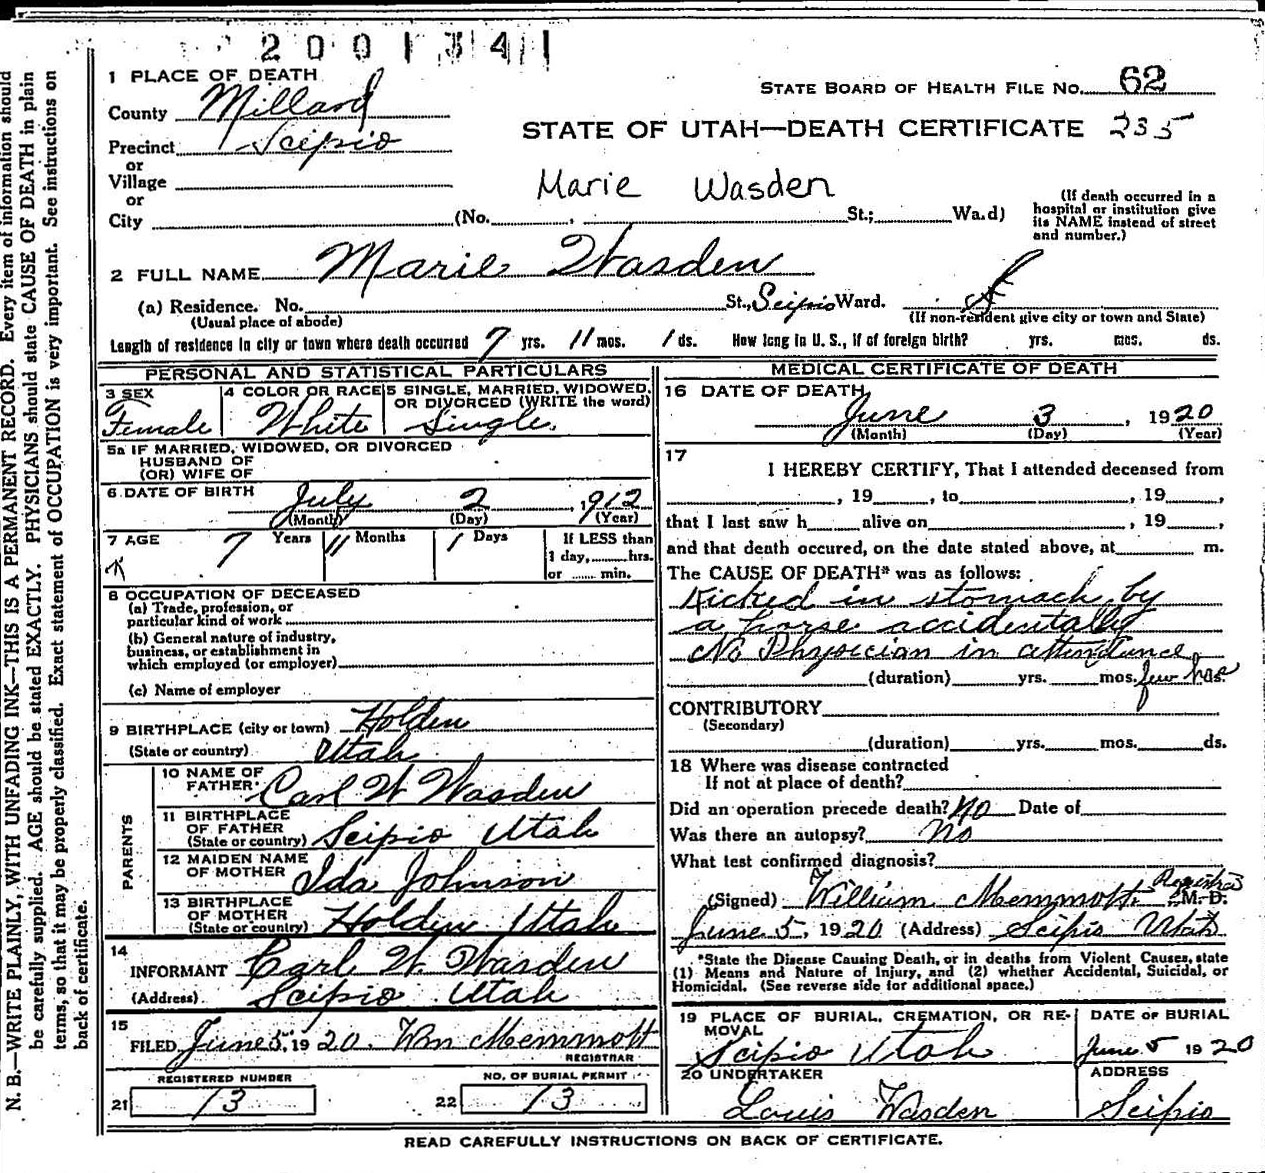 2001341
1 PLACE OF DEATH
County Millard
STATE BOARD OF HEALTH FILE NO. 62
Precinct Scipio
STATE OF UTAH—DEATH CERTIFICATE 235
or
Village
or
Marie Wasden
City (No. , St.; Wa.d)
(If death occurred in a
hospital or institution give
its NAME instead of street
and number.)
2 FULL NAME Marie Wasden
(a) Residence. No. St., Scipio Ward.
(Usual place of abode)
(If non-resident give city or town and State)
Length of residence in city or town where death occurred 7 yrs. 11 mos. 1 ds. How long in U. S., if of foreign birth? yrs. mos. ds.
PERSONAL AND STATISTICAL PARTICULARS
3 SEX
Female
4 COLOR OR RACE
White
5 SINGLE, MARRIED, WIDOWED,
OR DIVORCED (WRITE the word)
Single.
5a IF MARRIED, WIDOWED, OR DIVORCED
HUSBAND OF
(OR) WIFE OF
6 DATE OF BIRTH
July 2, 1912
(Month) (Day) (Year)
7 AGE 7 Years 11 Months 1 Days
If LESS than
1 day, hrs.
or min.
8 OCCUPATION OF DECEASED
(a) Trade, profession, or
particular kind of work
(b) General nature of industry,
business, or establishment in
which employed (or employer)
(c) Name of employer
9 BIRTHPLACE (city or town) Holden
(State or country) Utah
PARENTS
10 NAME OF
FATHER Carl W Wasden
11 BIRTHPLACE
OF FATHER
(State or country) Scipio Utah
12 MAIDEN NAME
OF MOTHER Ida Johnson
13 BIRTHPLACE
OF MOTHER
(State or country) Holden Utah
14
INFORMANT Carl W. Wasden
(Address) Scipio Utah
15
FILED June 5, 1920. Wm Memmott
REGISTRAR
REGISTERED NUMBER
21 13
NO. OF BURIAL PERMIT
22 13
MEDICAL CERTIFICATE OF DEATH
16 DATE OF DEATH
June 3, 1920
(Month) (Day) (Year)
17
I HEREBY CERTIFY, That I attended deceased from
, 19 , to , 19 ,
that I last saw h alive on , 19 ,
and that death occured, on the date stated above, at m.
The CAUSE OF DEATH* was as follows:
Kicked in stomach by
a horse accidentally
No Physician in attendance
(duration) yrs. mos. few hrs.
CONTRIBUTORY
(Secondary)
(duration) yrs. mos. ds.
18 Where was disease contracted
If not at place of death?
Did an operation precede death? No Date of
Was there an autopsy? No
What test confirmed diagnosis?
Registrar
(Signed) William Memmott. M. D.
June 5, 1920 (Address) Scipio Utah
*State the Disease Causing Death, or in deaths from Violent Causes, state
(1) Means and Nature of Injury, and (2) whether Accidental, Suicidal, or
Homicidal. (See reverse side for additional space.)
19 PLACE OF BURIAL, CREMATION, OR RE-
MOVAL
Scipio Utah
DATE OF BURIAL
June 5 1920
20 UNDERTAKER
Louis Wasden
ADDRESS
Scipio
READ CAREFULLY INSTRUCTIONS ON BACK OF CERTIFICATE.
N. B.—WRITE PLAINLY, WITH UNFADING INK—THIS IS A PERMANENT RECORD. Every item of information should
be carefully supplied. AGE should be stated EXACTLY. PHYSICIANS should state CAUSE OF DEATH in plain
terms, so that it may be properly classified. Exact statement of OCCUPATION is very important. See instructions on
back of certificate.